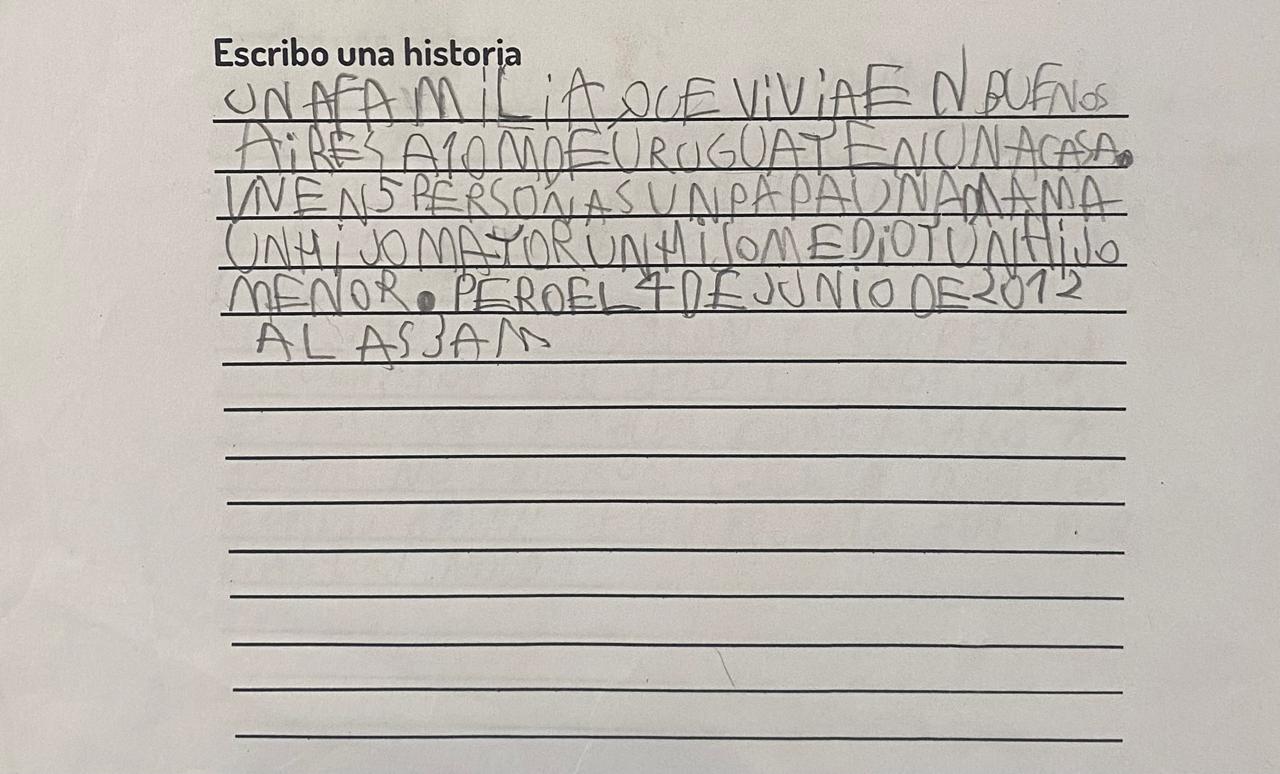 Escribo una historia
UNA FAMILIA QUE VIVIA EN BUENOS
AIRES A 10 M DE URUGUAY EN UNA CASA.
VIVEN 5 PERSONAS UN PAPA UNA MAMA
UN HIJO MAYOR UN HIJO MEDIO Y UN HIJO
MENOR. PERO EL 4 DE JUNIO DE 2012
A LAS 3 AM